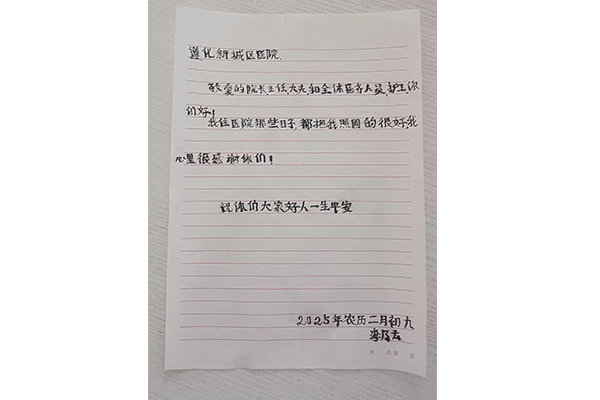 遵化新城区医院.
敬爱的院长主任大夫和全体医务人员,护工,你
们好!
我住医院那些日子,都把我照顾的很好,我
心里很感谢你们!
祝你们大家好人一生平安
2025年农历二月初九
李
月 页 第 页